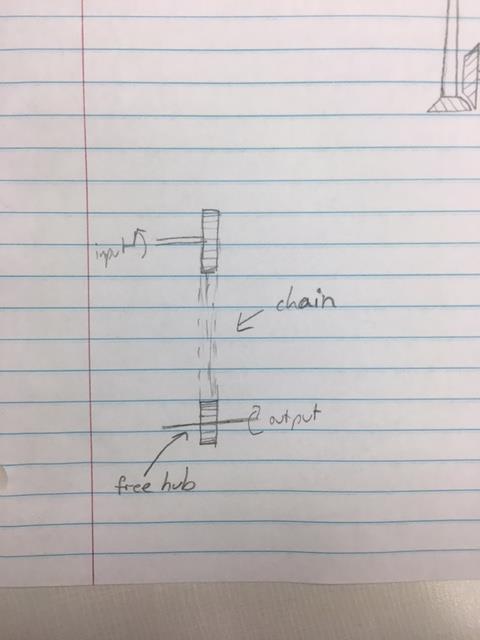 input
chain
output
free hub